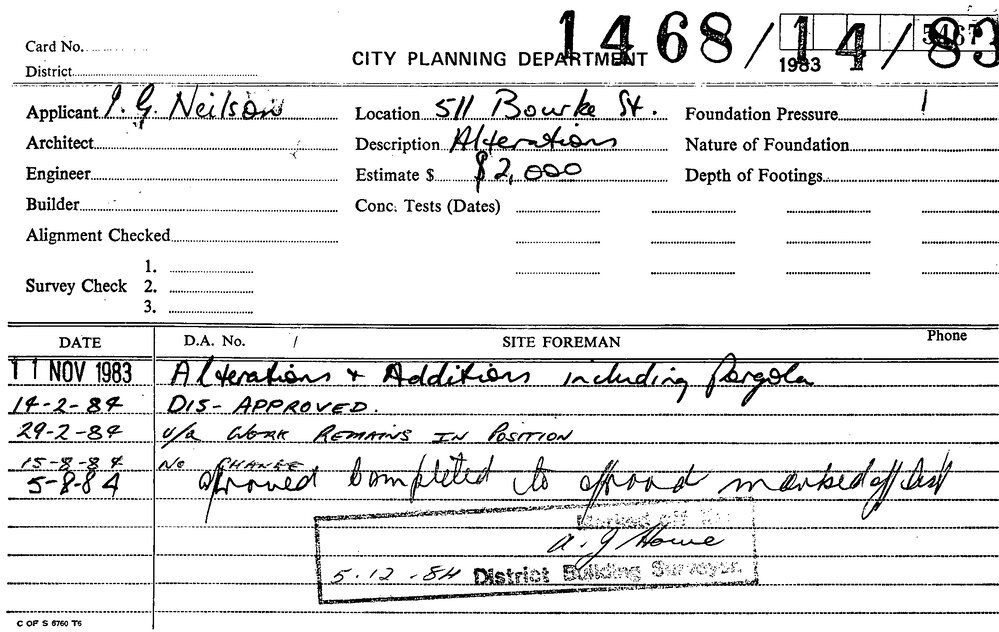 1468/14/83
5467
1983
Card No.
CITY PLANNING DEPARTMENT
District
Applicant I. G. Neilson Location 511 Bourke St. Foundation Pressure
Architect Description Alterations Nature of Foundation
Engineer Estimate $ $2,000 Depth of Footings
Builder Conc. Tests (Dates)
Alignment Checked
1.
Survey Check 2.
3.
DATE D.A. No. / SITE FOREMAN Phone
11 NOV 1983 Alterations & Additions including Pergola
14-2-84 DIS-APPROVED.
29-2-84 u/a WORK REMAINS IN POSITION
15-8-84 No CHANGE
5-8-84 aproved completed to marked off list
Marked off
A. J Howe
5.12.84 District Building Surveyor.
C OF S 6760 T6